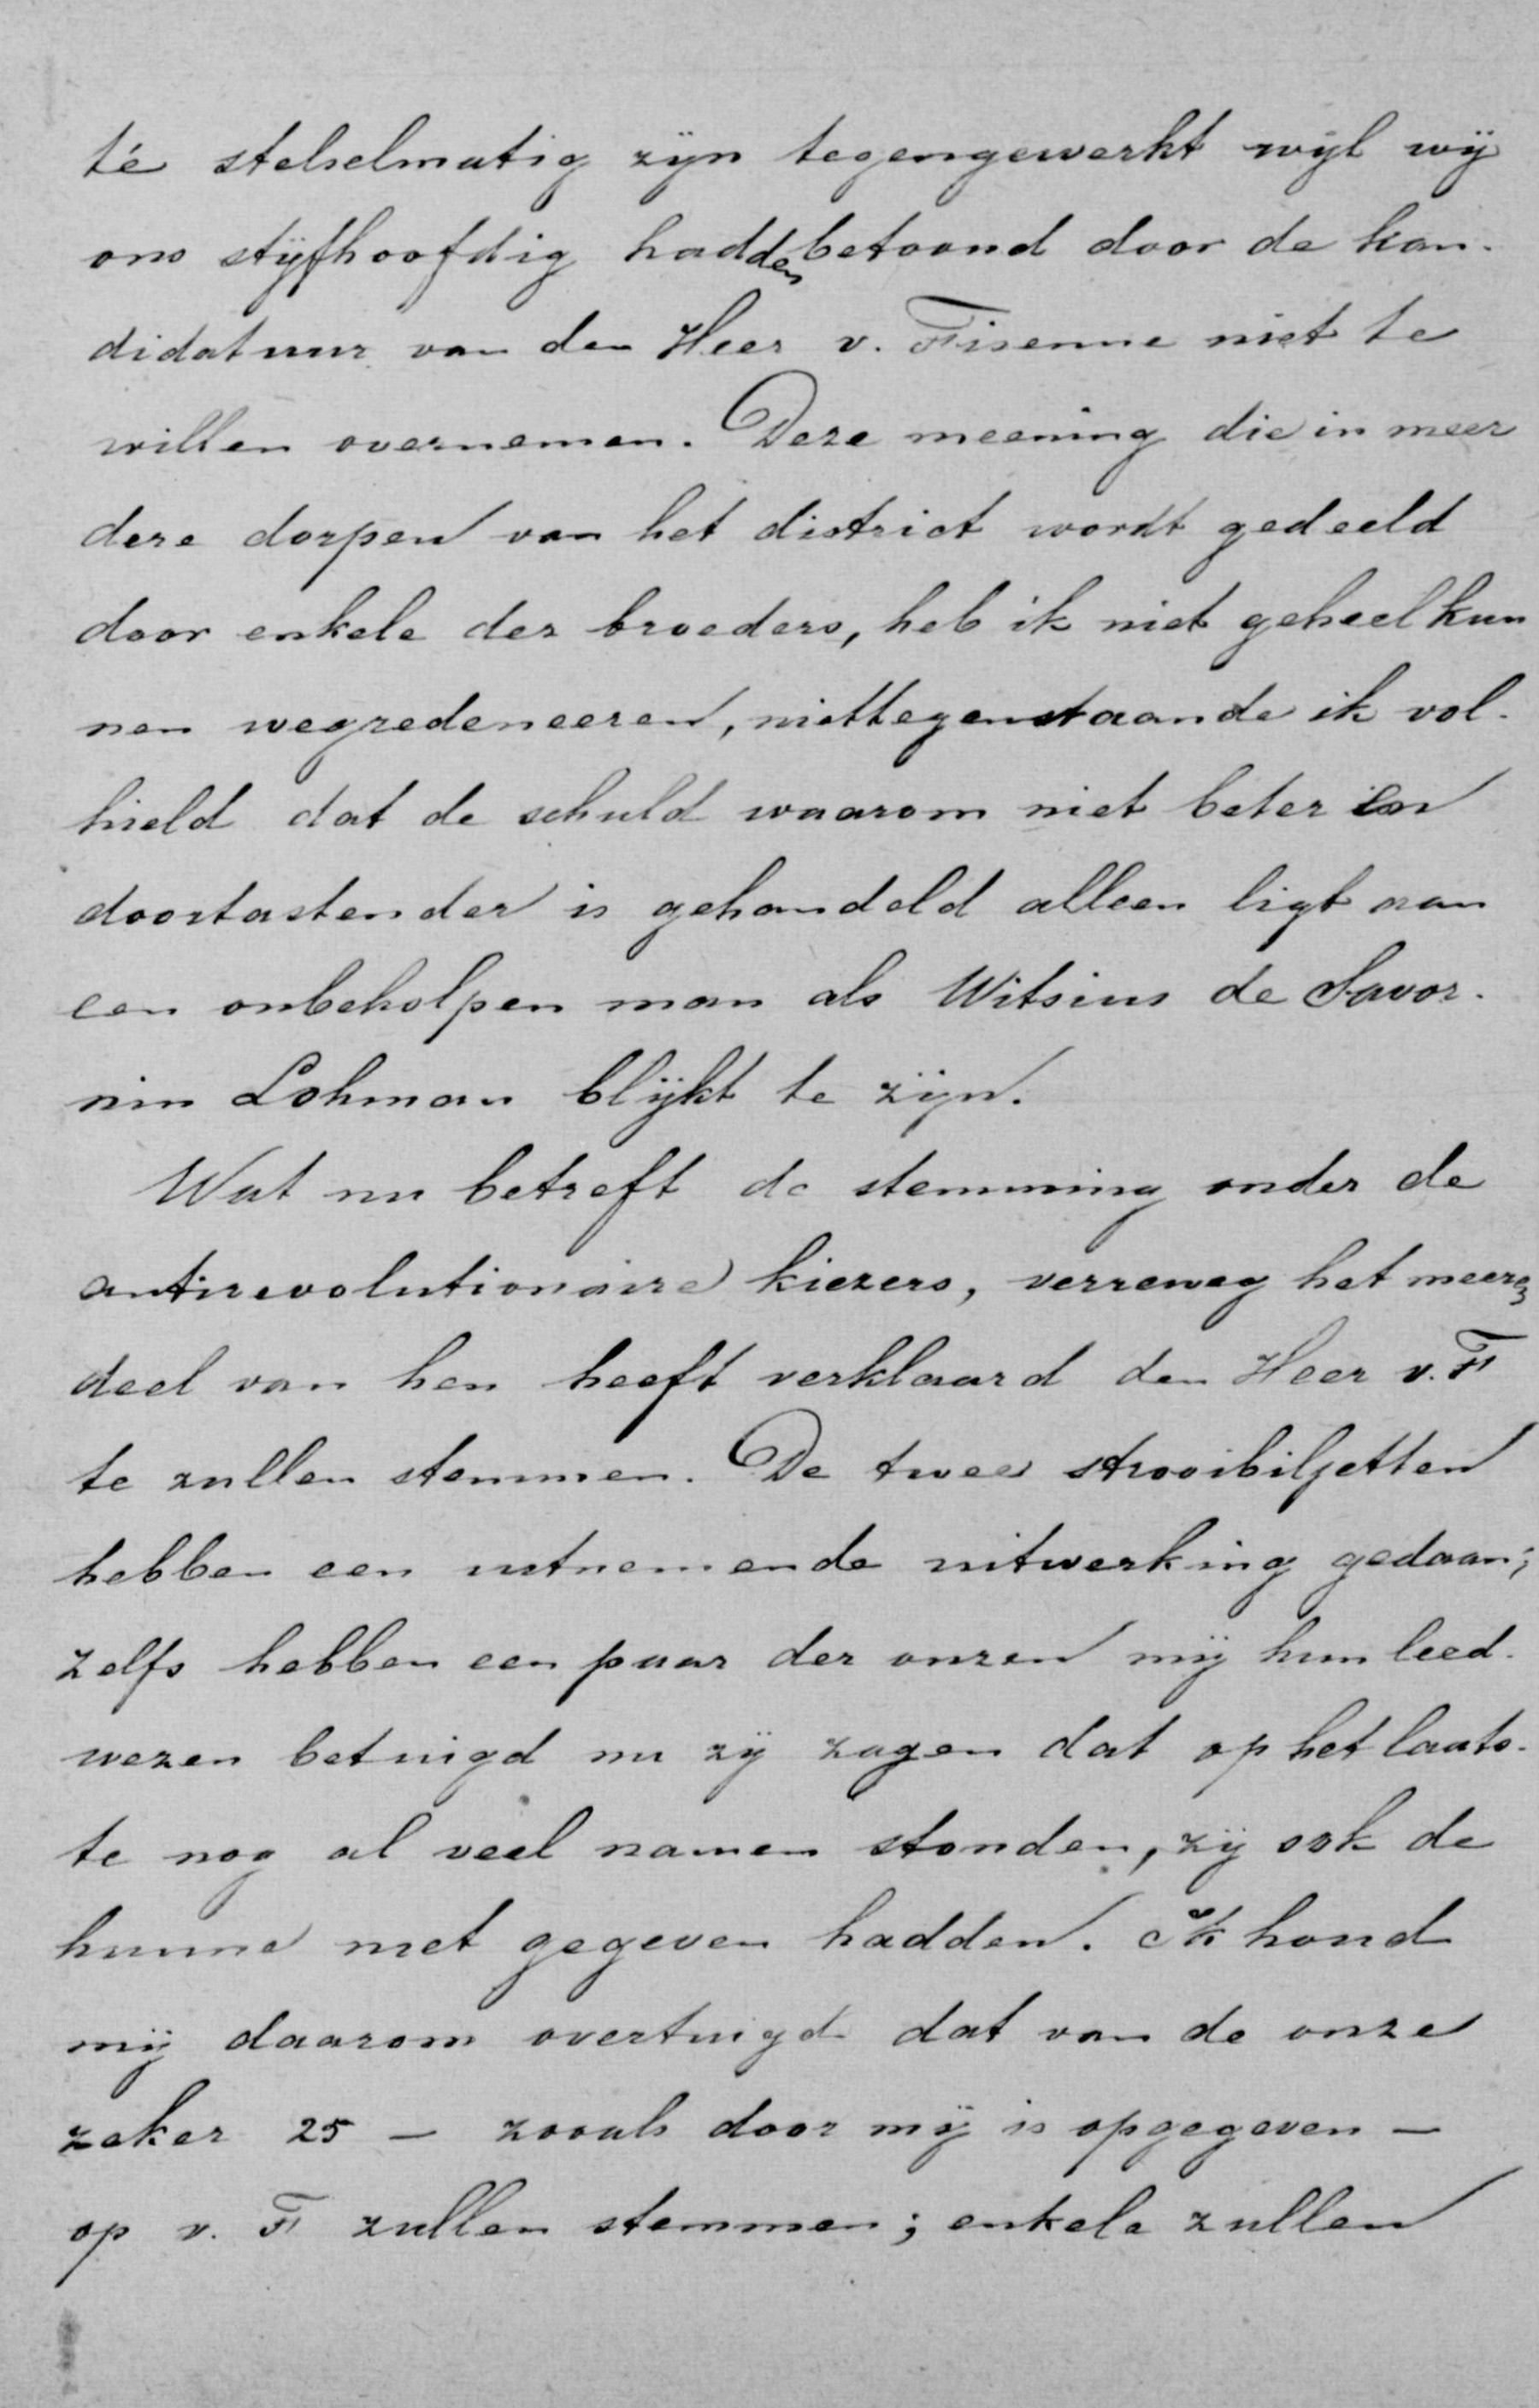 té stelselmatig zijn tegengewerkt wijl wij
ons stijfhoofdig hadden betoond door de kan-
didatuur van den Heer v. Fisenne niet te
willen overnemen. Deze meening die in meer
dere dorpen van het district wordt gedeeld
door enkele der broeders, heb ik niet geheel kun
nen wegredeneeren, niettegenstaande ik vol-
hield dat de schuld waarom niet beter en
doortastender is gehandeld alleen ligt aan
een onbeholpen man als Witsius de Savor-
nin Lohman blijkt te zijn.
Wat nu betreft de stemming onder de
antirevolutionaire kiezers, verreweg het meeren
deel van hen heeft verklaard den Heer v. F
te zullen stemmen. De twee strooibiljetten
hebben een uitnemende uitwerking gedaan;
zelfs hebben een paar der onzen mij hun leed-
wezen betuigd nu zij zagen dat op het laats-
te nog al veel namen stonden, zij ook de
hunne niet gegeven hadden. Ik houd
mij daarom overtuigd dat van de onze
zeker 25 – zooals door mij is opgegeven –
op v. F zullen stemmen; enkele zullen